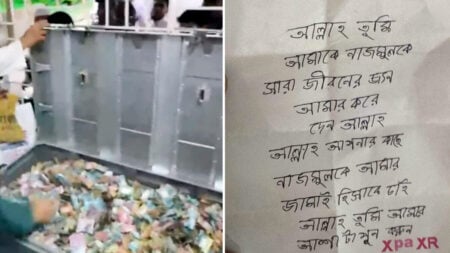 আল্লাহ তুমি
আমাকে নাজমুলকে
সারা জীবনের জন্য
আমার করে
দেন আল্লাহ
আল্লাহ আপনার কাছে
নাজমুলকে আমার
জামাই হিসাবে চাই
আল্লাহ তুমি আমার
আশা টা পুরন করুন
Xpa XR